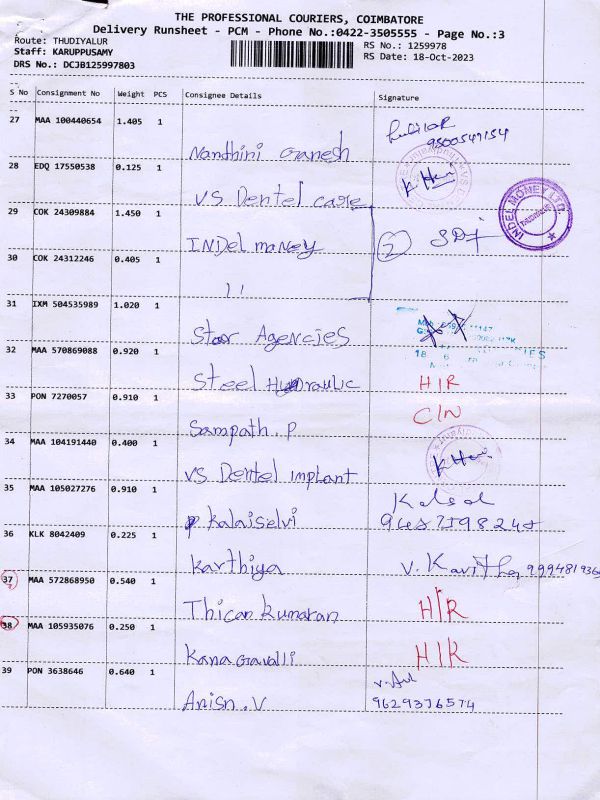 THE PROFESSIONAL COURIERS, COIMBATORE
Delivery Runsheet - PCM - Phone No.:0422-3505555 - Page No.:3
Route: THUDIYALUR
RS No.: 1259978
Staff: KARUPPUSAMY
RS Date: 18-Oct-2023
DRS No.: DCJB125997803
S No Consignment No Weight PCS Consignee Details Signature
27 MAA 100440654 1.405 1
9500549154
Nandhini Ganesh
28 EDQ 17550538 0.125 1
VS Dentel care
29 COK 24309884 1.450 1
INDEL MONEY LTD.
THUDIYALUR
INDel money
2
30 COK 24312246 0.405 1
11
31 IXM 504535989 1.020 1
Star Agencies
32 MAA 570869088 0.920 1
Steel Hydraulic H/R
33 PON 7270057 0.910 1
C/N
Sampath.P
34 MAA 104191440 0.400 1
VS Dentel implant
35 MAA 105027276 0.910 1
P kalaiselvi
36 KLK 8042409 0.225 1
Karthiya V. Kavitha
37 MAA 572868950 0.540 1
Thican kumaran H/R
38 MAA 105935076 0.250 1
Kana Gravalli H/R
39 PON 3638646 0.640 1
Anisn.V 9629376574